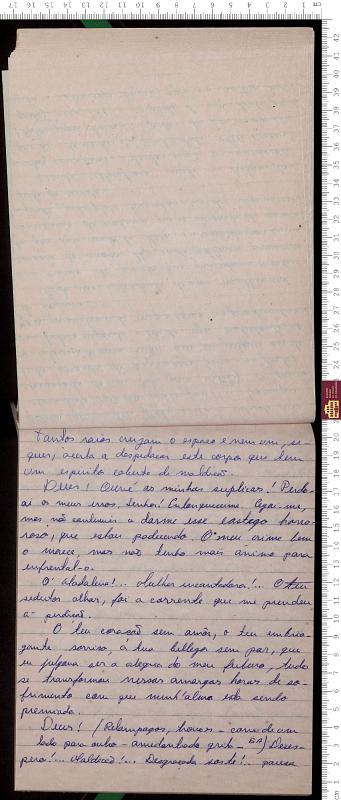 Tantos raios cruzam o espaço e nem um, se-
quer, acerta a despedaçar este corpo que tem
um espirito coberto de maldição.
Deus! Ouvi as minhas suplicas! Perdo-
ai os meus erros, Senhor! Cegai-me,
mas não continueis a dar-me esse castigo horro-
roso, que estou padecendo. O meu crime bem
o merece, mas não tenho mais animo para
enfrental-o.
O' Madalena!... Mulher encantadora!... O teu
sedutor olhar, foi a corrente que me prendeu
a perdição.
O teu coração sem amôr, o teu embria-
gante sorriso, a tua belleza sem par, que
eu julgava ser a alegria do meu futuro, tudo
se transformou nessas amargas horas de so-
frimento com que minh'alma está sendo
premiada.
Deus! (Relampagos, trovões - corre de um
lado para outro - amedrontado grita - Deses-
pero!... Maldição!... Desgraçada sorte!.. pausa